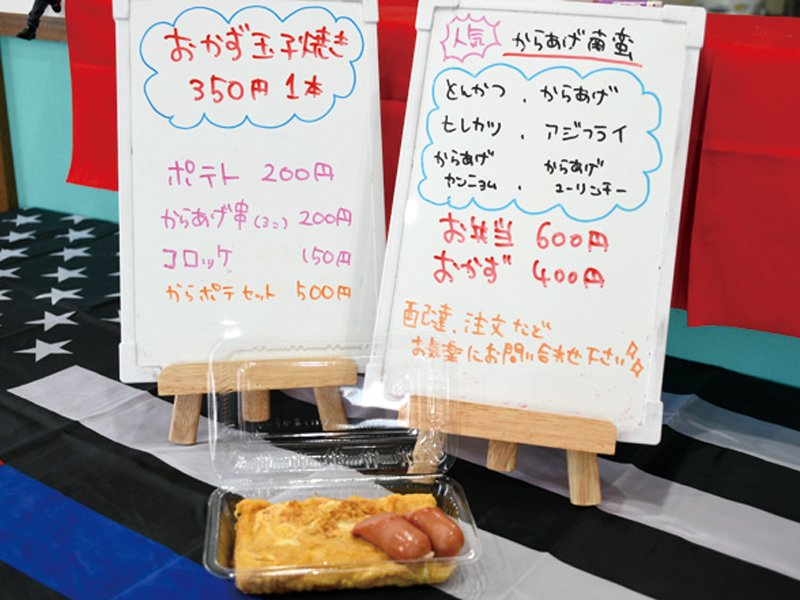 おかず玉子焼き
350円 1本
ポテト 200円
からあげ串(3コ) 200円
コロッケ 150円
からポテセット 500円
人気 からあげ南蛮
とんかつ、からあげ
ヒレカツ、アジフライ
からあげ からあげ
カンニョム、ユーリンチー
お弁当 600円
おかず 400円
配達、注文など
お気軽にお問い合わせ下さい